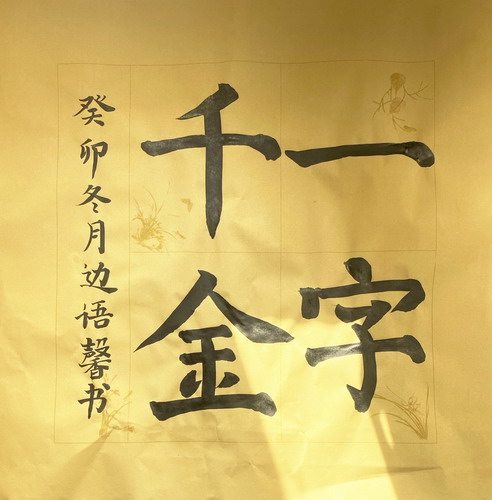 一字
千金
癸卯冬月边语馨书